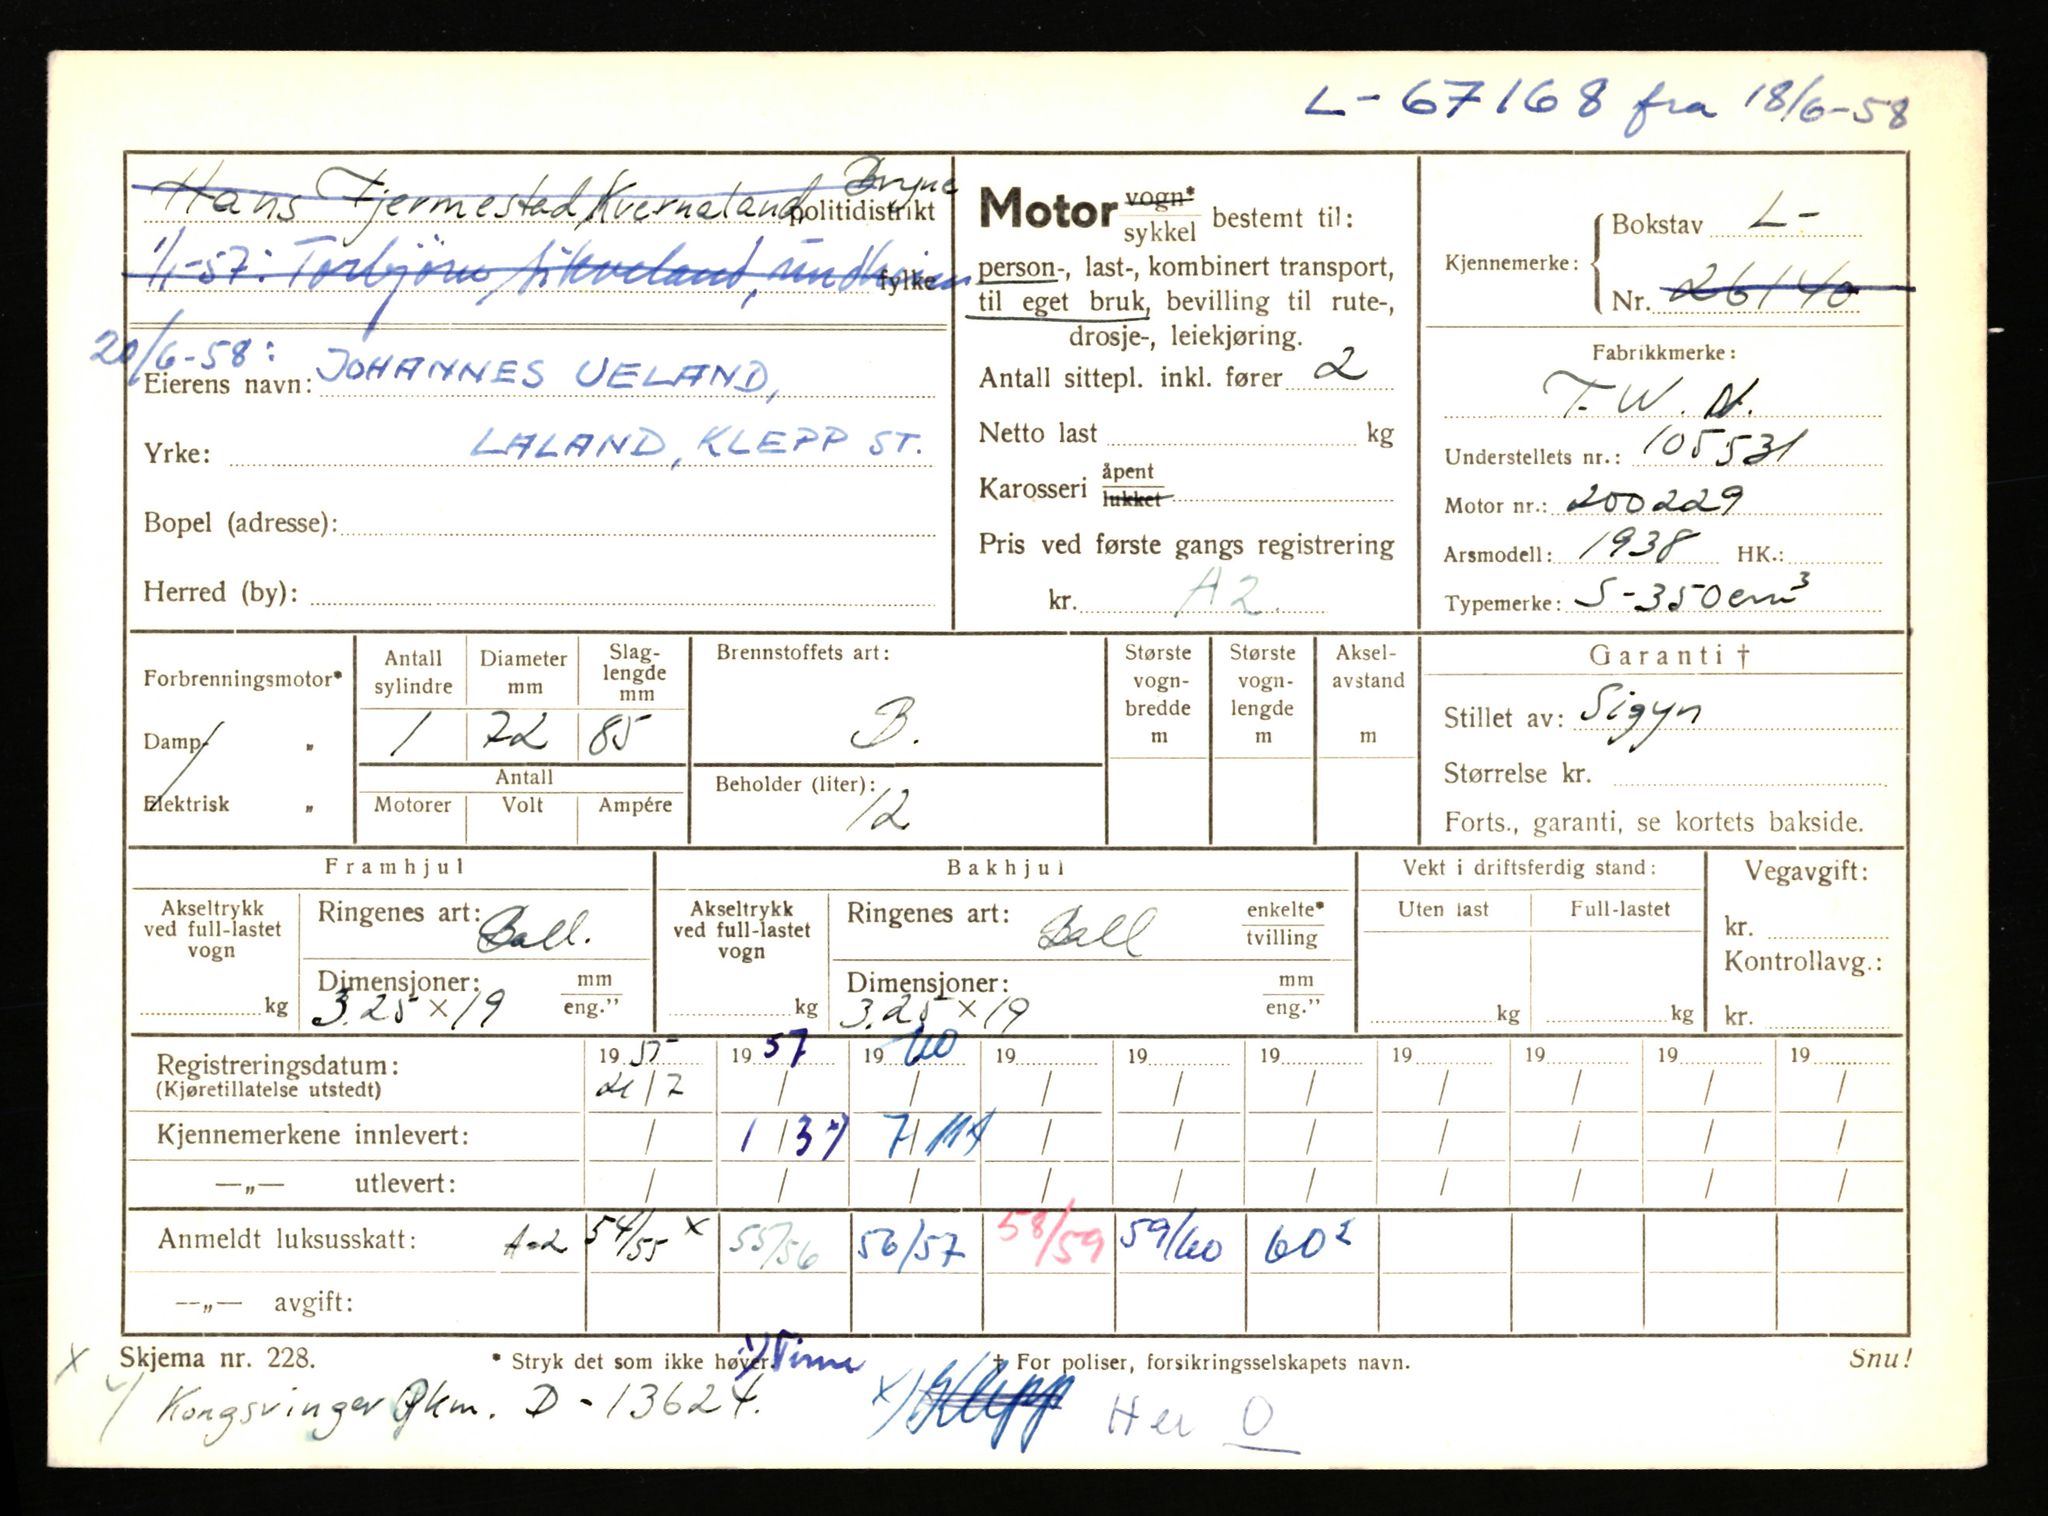 L-67168 fra 18/6-58
Hans Fjermestad, Kvernaland, Bryne politidistrikt
1/1-57: Torbjörn fylke
20/6-58:
Eierens navn: JOHANNES UELAND,
Yrke: LALAND, KLEPP ST.
Bopel (adresse):
Herred (by):
Motor vogn* sykkel bestemt til:
person-, last-, kombinert transport,
til eget bruk, bevilling til rute-,
drosje-, leiekjøring.
Antall sittepl. inkl. fører 2
Netto last kg
Karosseri åpent lukket
Pris ved første gangs registrering
kr. A2
Kjennemerke: Bokstav L-
Nr. 26140
Fabrikkmerke:
T.W.N.
Understellets nr.: 105531
Motor nr.: 200229
Arsmodell: 1938 HK.:
Typemerke: S-350cm³
Forbrenningsmotor*
Damp- „
Elektrisk „
Antall sylindre Diameter mm Slag-lengde mm
1 72 85
Antall
Motorer Volt Ampére
Brennstoffets art:
B.
Beholder (liter):
12
Største vogn-bredde m
Største vogn-lengde m
Aksel-avstand m
Garanti †
Stillet av: Sigyn
Størrelse kr.
Forts., garanti, se kortets bakside.
Framhjul
Akseltrykk ved full-lastet vogn kg
Ringenes art: Ball.
Dimensjoner: mm eng.”
3.25 x 19
Bakhjul
Akseltrykk ved full-lastet vogn kg
Ringenes art: Ball enkelte* tvilling
Dimensjoner: mm eng.”
3.25 x 19
Vekt i driftsferdig stand:
Uten last Full-lastet
kg kg
Vegavgift:
kr.
Kontrollavg.:
kr.
Registreringsdatum: 1955 1957 1960 19 19 19 19 19 19 19
(Kjøretillatelse utstedt) / / / / / / / / /
Kjennemerkene innlevert: / / / / / / / /
—„— utlevert: / / / / / / / / / /
Anmeldt luksusskatt: A-2 54/55 x 55/56 56/57 58/59 59/60 60²
—„— avgift:
Skjema nr. 228. * Stryk det som ikke høver. x) Time † For poliser, forsikringsselskapets navn. Snu!
x
Kongsvinger km. D-13624. x) Klepp Her O